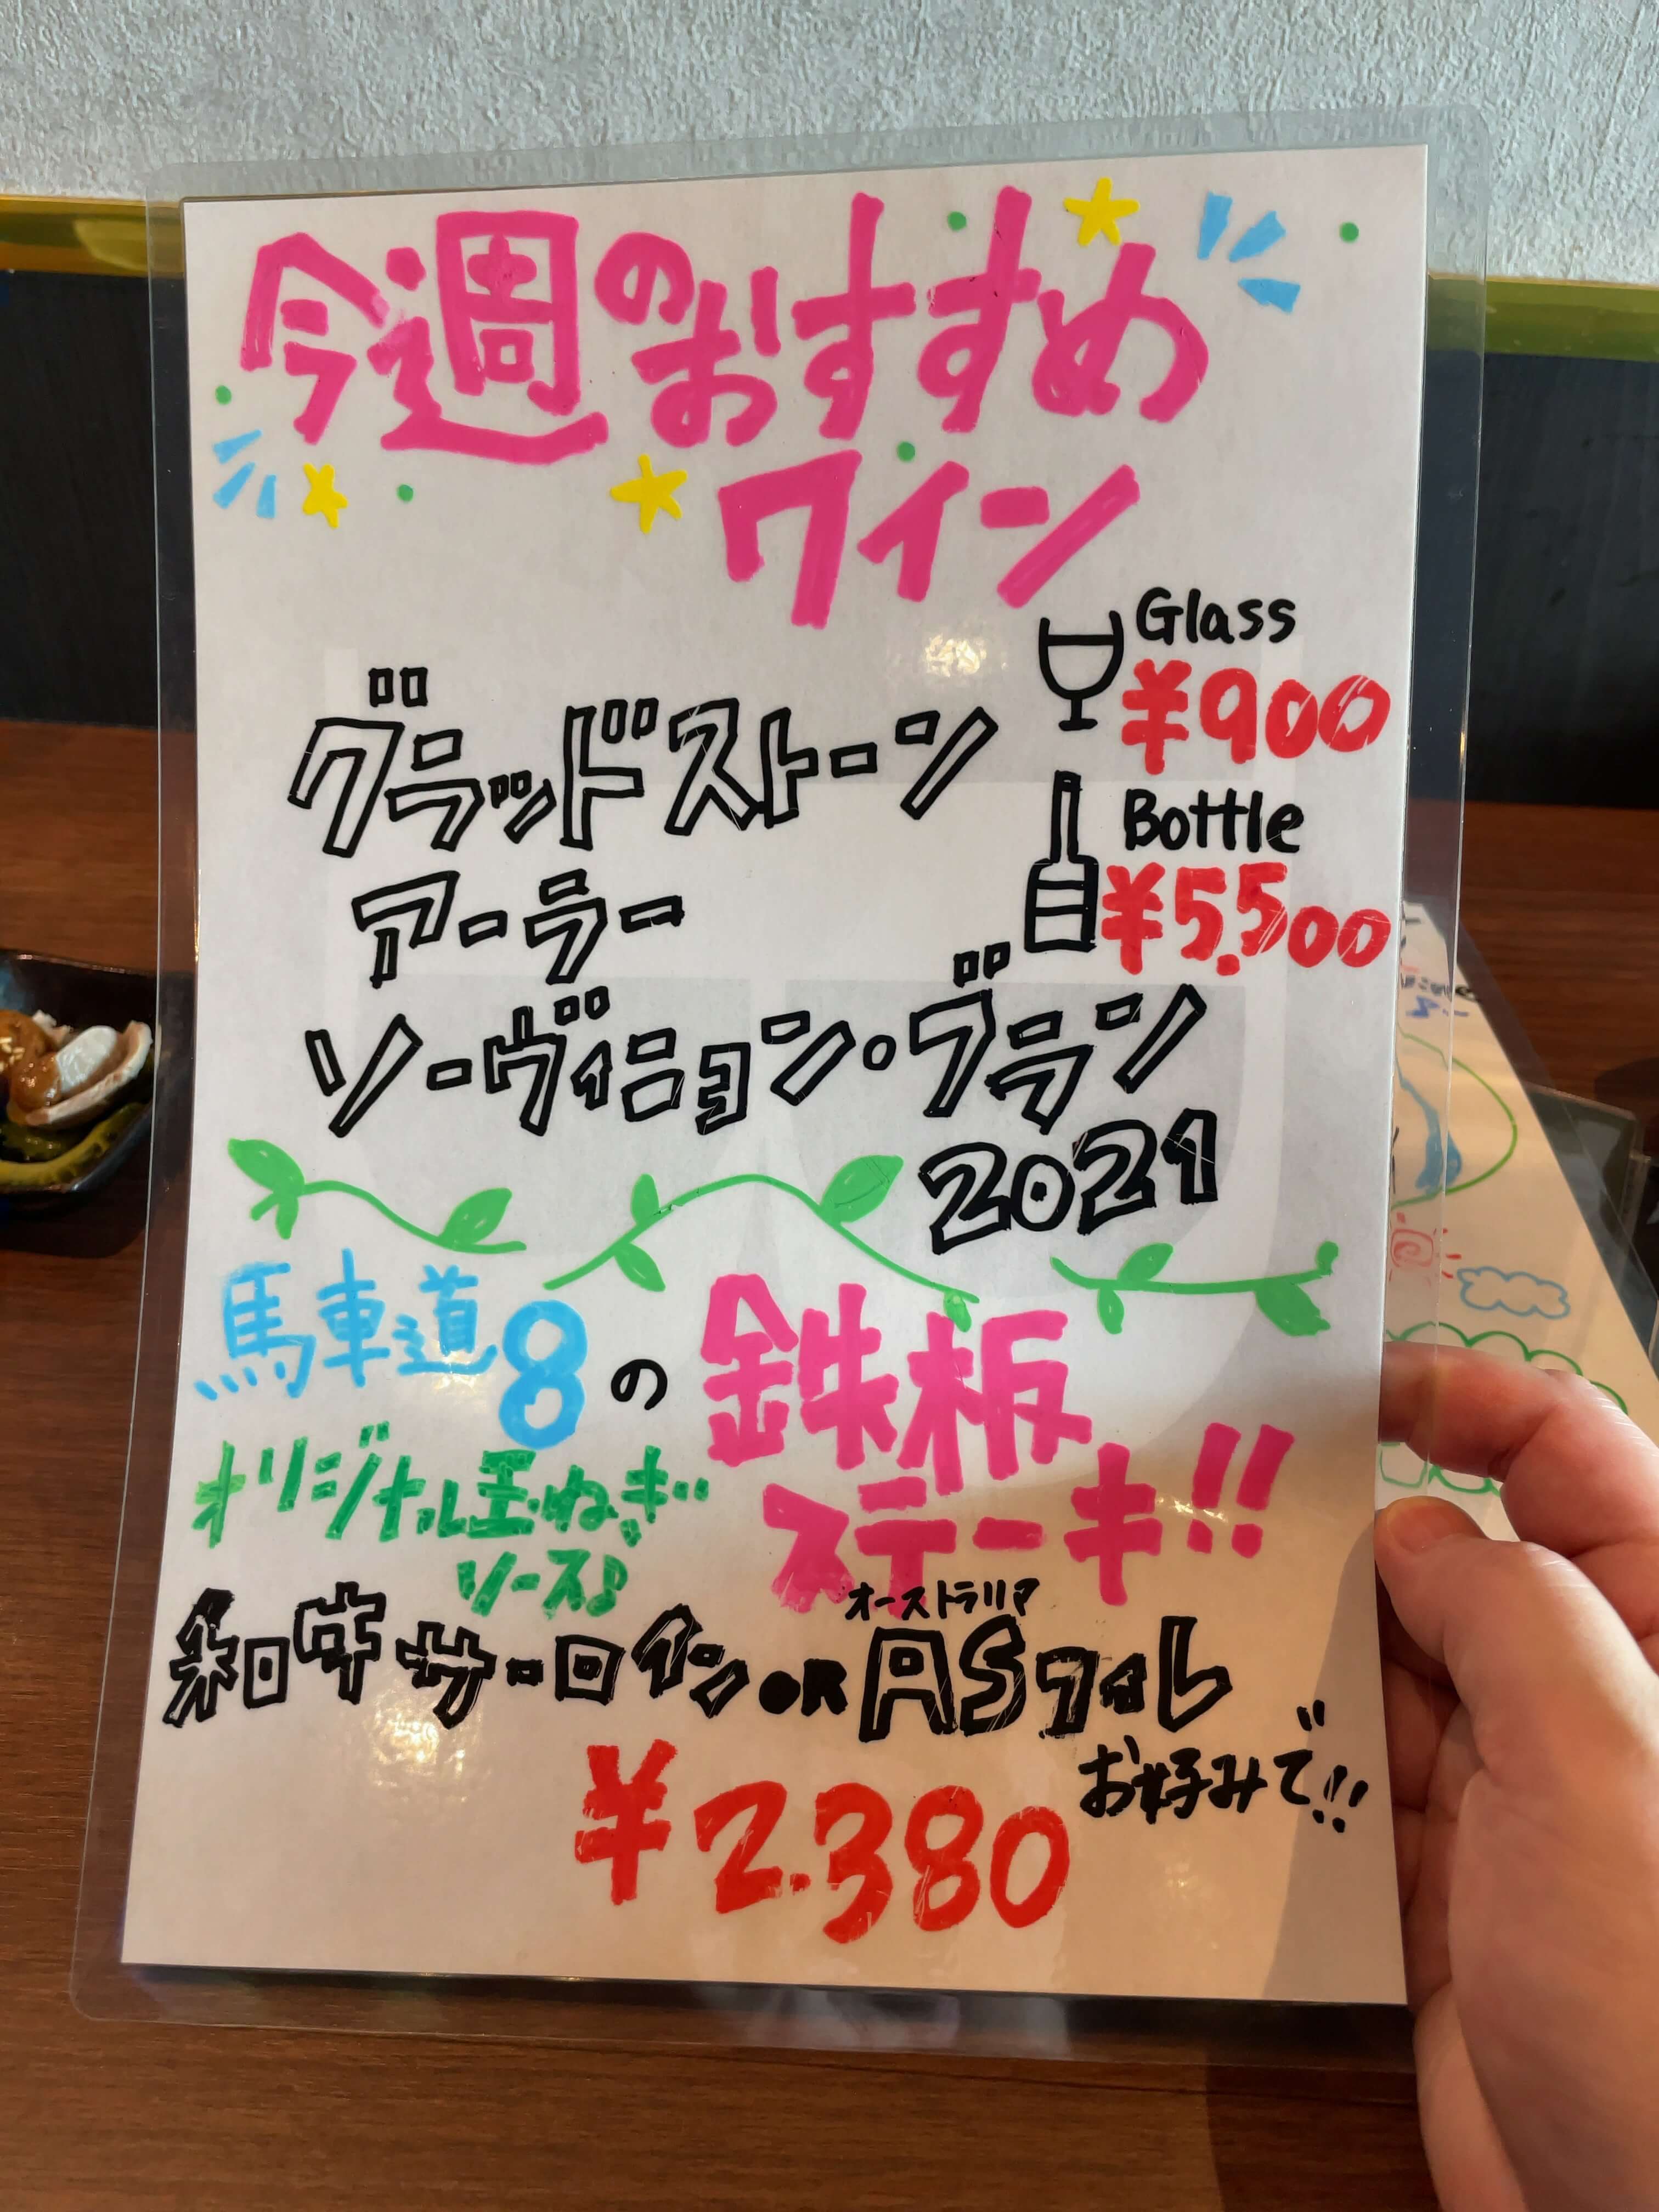 今週のおすすめ
ワイン
Glass
¥900
グラッドストーン
Bottle
¥5.500
アーラー
ソーヴィニョン・ブラン
2021
馬車道8の鉄板
ステーキ!!
オリジナル玉ねぎ
ソース♪
オーストラリア
和牛サーロイン OR ASフィレ
お好みで!!
¥2.380